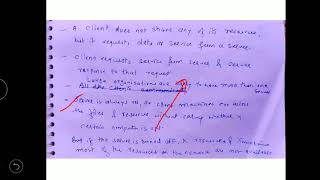 - A client does not share any of its resource,
but it requests data or service from a server
- Client requests service from server & server
response to that request
Large organisations are to have more than one
server
- All the clients
- Server is always on, so client machines can access
the files & resource without caring whether a
certain computer is on.
But if the server is turned off, resources & sometimes
most of the resources on the network are not available